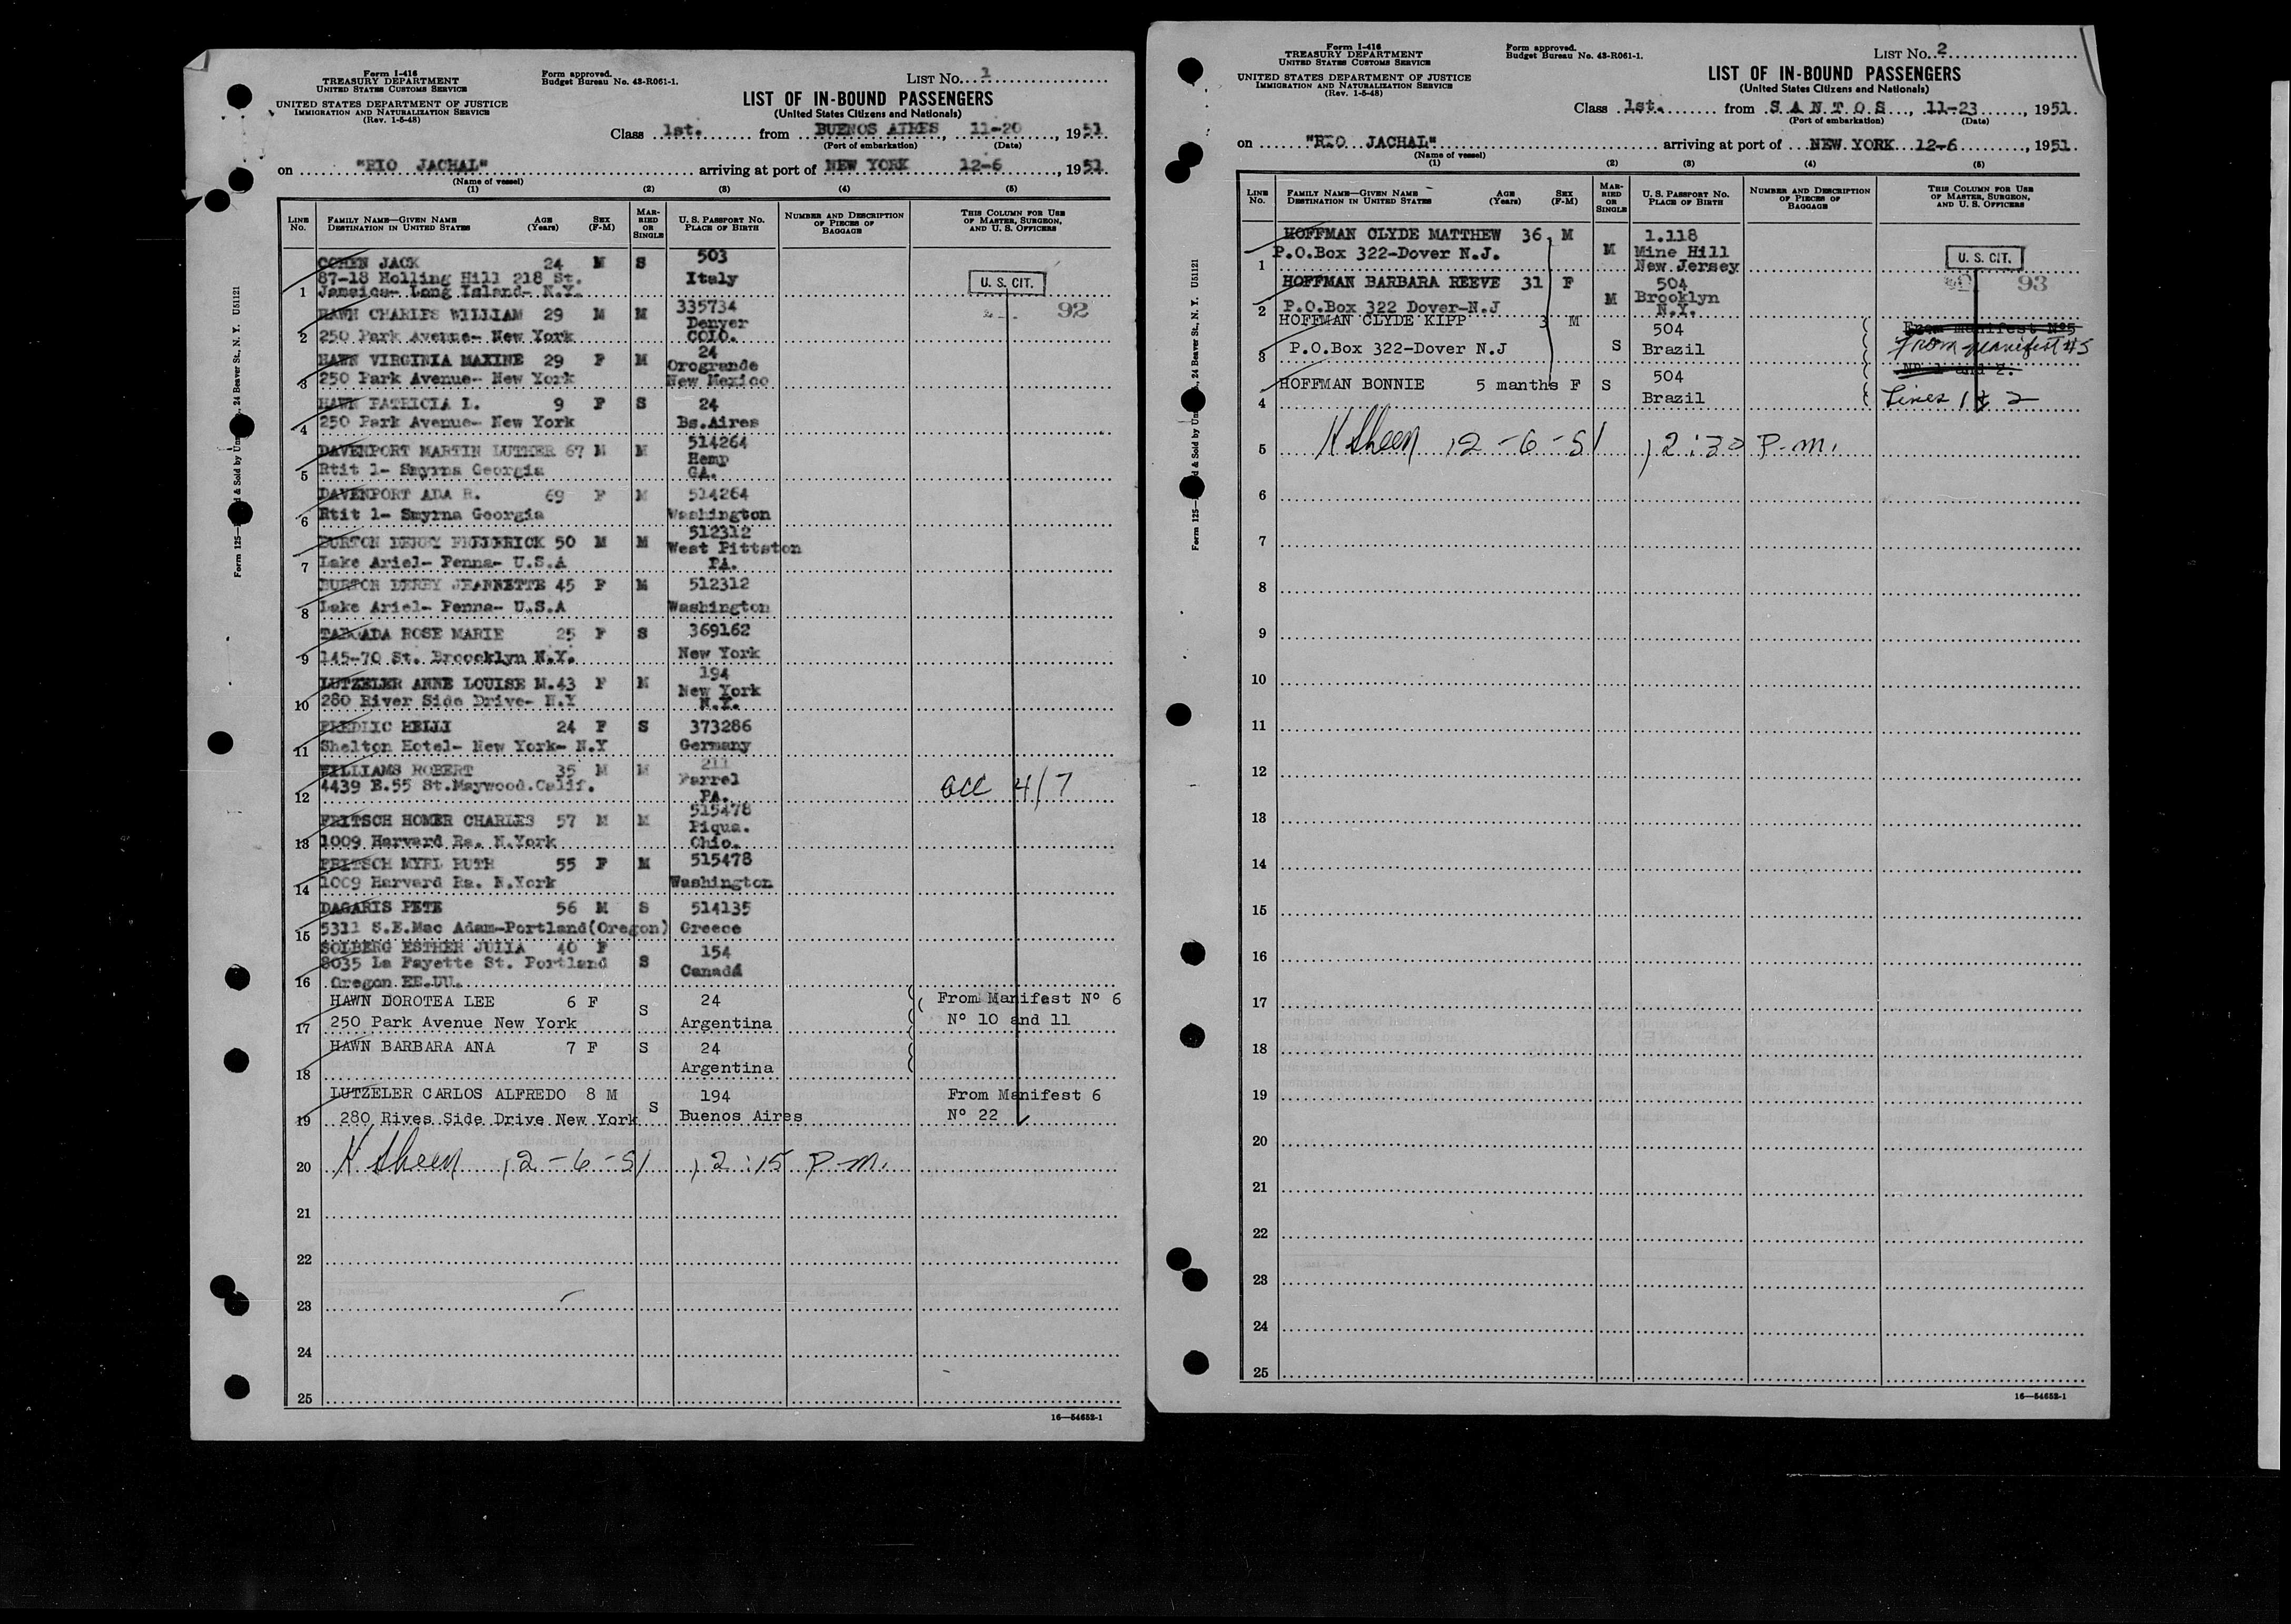 Form I-416
TREASURY DEPARTMENT
UNITED STATES CUSTOMS SERVICE
UNITED STATES DEPARTMENT OF JUSTICE
IMMIGRATION AND NATURALIZATION SERVICE
(Rev. 1-5-48)
Form approved.
Budget Bureau No. 43-R061-1.
LIST No. 1
LIST OF IN-BOUND PASSENGERS
(United States Citizens and Nationals)
Class 1st. from BUENOS AIRES, 11-20, 1951
(Port of embarkation) (Date)
on "RIO JACHAL" arriving at port of NEW YORK 12-6, 1951.
(Name of vessel)
(1) (2) (3) (4) (5)
LINE No. FAMILY NAME—GIVEN NAME DESTINATION IN UNITED STATES AGE (Years) SEX (F-M) MARRIED OR SINGLE U. S. PASSPORT NO. PLACE OF BIRTH NUMBER AND DESCRIPTION OF PIECES OF BAGGAGE THIS COLUMN FOR USE OF MASTER, SURGEON, AND U. S. OFFICERS
COHEN JACK 24 M S 503
87-18 Holling Hill 218 St. Italy U. S. CIT.
1 Jamaica- Long Island- N.Y.
HAWN CHARLES WILLIAM 29 M M 335734 92
Denver
2 250 Park Avenue- New York COLO.
HAWN VIRGINIA MAXINE 29 F M 24
Orogrande
3 250 Park Avenue- New York New Mexico
HAWN PATRICIA L. 9 F S 24
4 250 Park Avenue- New York Bs.Aires
DAVENPORT MARTIN LUTHER 67 M M 514264
Hemp
5 Rtit 1- Smyrna Georgia GA.
DAVENPORT ADA R. 69 F M 514264
6 Rtit 1- Smyrna Georgia Washington
BURTON DERBY FREDERICK 50 M M 512312
West Pittston
7 Lake Ariel- Penna- U.S.A PA.
BURTON DERBY JEANNETTE 45 F M 512312
8 Lake Ariel- Penna- U.S.A Washington
TABOADA ROSE MARIE 25 F S 369162
9 145-70 St. Broocklyn N.Y. New York
LUTZELER ANNE LOUISE M. 43 F M 194
New York
10 280 River Side Drive- N.Y N.Y.
FREDLIC HELLI 24 F S 373286
11 Shelton Hotel- New York- N.Y Germany
WILLIAMS ROBERT 35 M M 211
4439 E.55 St.Maywood.Calif. Farrel
12 PA. acc 4/7
FRITSCH HOMER CHARLES 57 M M 515478
Piqua.
13 1009 Harvard Ra. N.York Ohio.
FRITSCH MYRL RUTH 55 F M 515478
14 1009 Harvard Ra. N.York Washington
DAGARIS PETE 56 M S 514135
15 5311 S.E.Mac Adam-Portland(Oregon) Greece
SOLBERG ESTHER JULIA 40 F 154
8035 La Fayette St. Portland S Canadá
16 Oregon EE.UU.
HAWN DOROTEA LEE 6 F S 24 From Manifest Nº 6
17 250 Park Avenue New York Argentina Nº 10 and 11
HAWN BARBARA ANA 7 F S 24
18 Argentina
LUTZELER CARLOS ALFREDO 8 M S 194 From Manifest 6
19 280 Rives Side Drive New York Buenos Aires Nº 22
20 K Sheen 12-6-51 12:15 P.m.
21
22
23
24
25
16—54652-1
Form I-416
TREASURY DEPARTMENT
UNITED STATES CUSTOMS SERVICE
UNITED STATES DEPARTMENT OF JUSTICE
IMMIGRATION AND NATURALIZATION SERVICE
(Rev. 1-5-48)
Form approved.
Budget Bureau No. 43-R061-1.
LIST No. 2
LIST OF IN-BOUND PASSENGERS
(United States Citizens and Nationals)
Class 1st. from S.A.N.T.O.S, 11-23, 1951.
(Port of embarkation) (Date)
on "RIO JACHAL" arriving at port of NEW YORK 12-6, 1951.
(Name of vessel)
(1) (2) (3) (4) (5)
LINE No. FAMILY NAME—GIVEN NAME DESTINATION IN UNITED STATES AGE (Years) SEX (F-M) MARRIED OR SINGLE U. S. PASSPORT NO. PLACE OF BIRTH NUMBER AND DESCRIPTION OF PIECES OF BAGGAGE THIS COLUMN FOR USE OF MASTER, SURGEON, AND U. S. OFFICERS
HOFFMAN CLYDE MATTHEW 36 M 1.118
P.O.Box 322-Dover N.J. M Mine Hill U. S. CIT.
1 New Jersey
HOFFMAN BARBARA REEVE 31 F 504 93
M Brooklyn
2 P.O.Box 322 Dover-N.J N.Y.
HOFFMAN CLYDE KIPP 3 M 504 From manifest Nº5
3 P.O.Box 322-Dover N.J S Brazil From manifest #5
HOFFMAN BONNIE 5 manths F S 504 Nº 1 and 2.
4 Brazil Lines 1 & 2
5 K Sheen 12-6-51 12:30 P.m.
6
7
8
9
10
11
12
13
14
15
16
17
18
19
20
21
22
23
24
25
16—54652-1